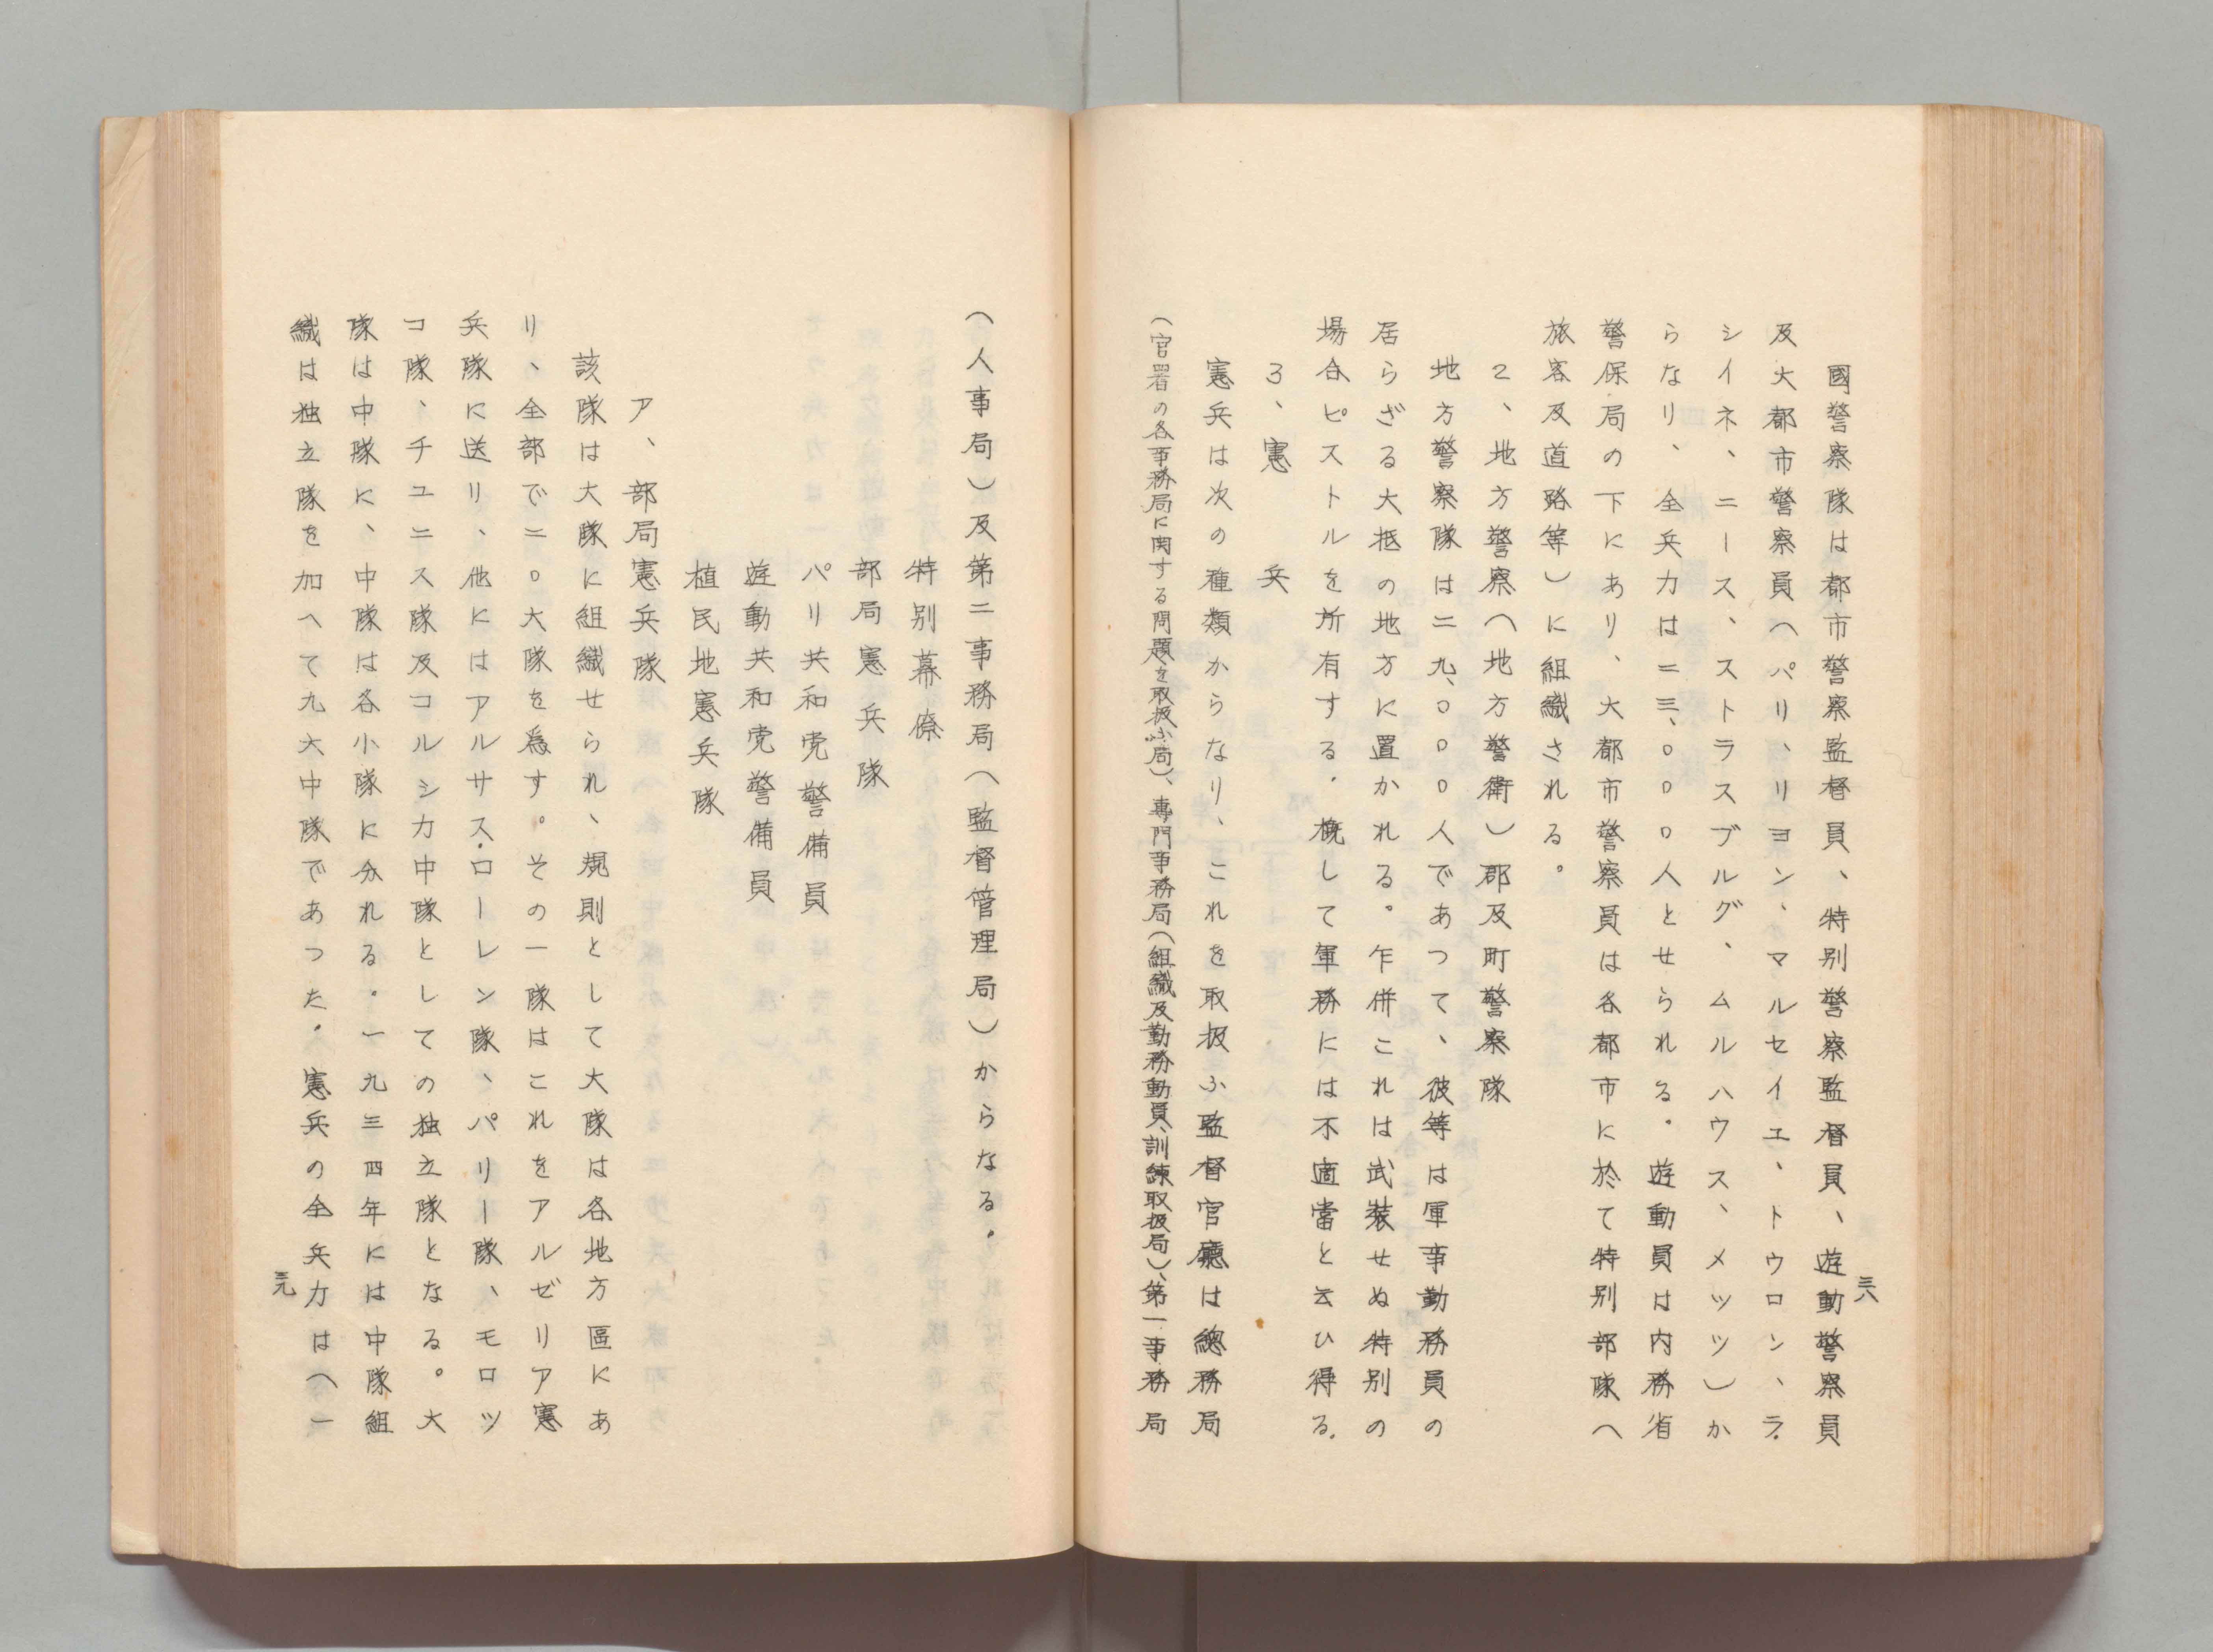 三八
國警察隊は都市警察監督員、特別警察監督員、遊動警察員
及大都市警察員（パリ、リヨン、マルセイエ、トウロン、ラ
シイネ、ニース、ストラスブルグ、ムルハウス、メッツ）か
らなり、全兵力は二三、〇〇〇人とせられる。遊動員は内務省
警保局の下にあり、大都市警察員は各都市に於て特別部隊へ
旅客及道路等）に組織される。
2、地方警察（地方警衛）郡及町警察隊
地方警察隊は二九、〇〇〇人であつて、彼等は軍事勤務員の
居らざる大抵の地方に置かれる。乍併これは武装せぬ特別の
場合ピストルを所有する。概して軍務には不適當と云ひ得る。
3、憲兵
憲兵は次の種類からなり、これを取扱ふ監督官廳は總務局
（官署の各事務局に関する問題を取扱ふ局）、專門事務局（組織及勤務動員、訓練取扱局）、第一事務局
（人事局）及第二事務局（監督管理局）からなる。
特別幕僚
部局憲兵隊
パリ共和党警備員
遊動共和党警備員
植民地憲兵隊
ア、部局憲兵隊
該隊は大隊に組織せられ、規則として大隊は各地方區にあ
り、全部で二〇大隊を為す。その一隊はこれをアルゼリア憲
兵隊に送り、他にはアルサス・ローレン隊、パリー隊、モロツ
コ隊、チユニス隊及コルシカ中隊としての独立隊となる。大
隊は中隊に、中隊は各小隊に分れる。一九三四年には中隊組
織は独立隊を加へて九大中隊であつた。憲兵の全兵力は（一
三九